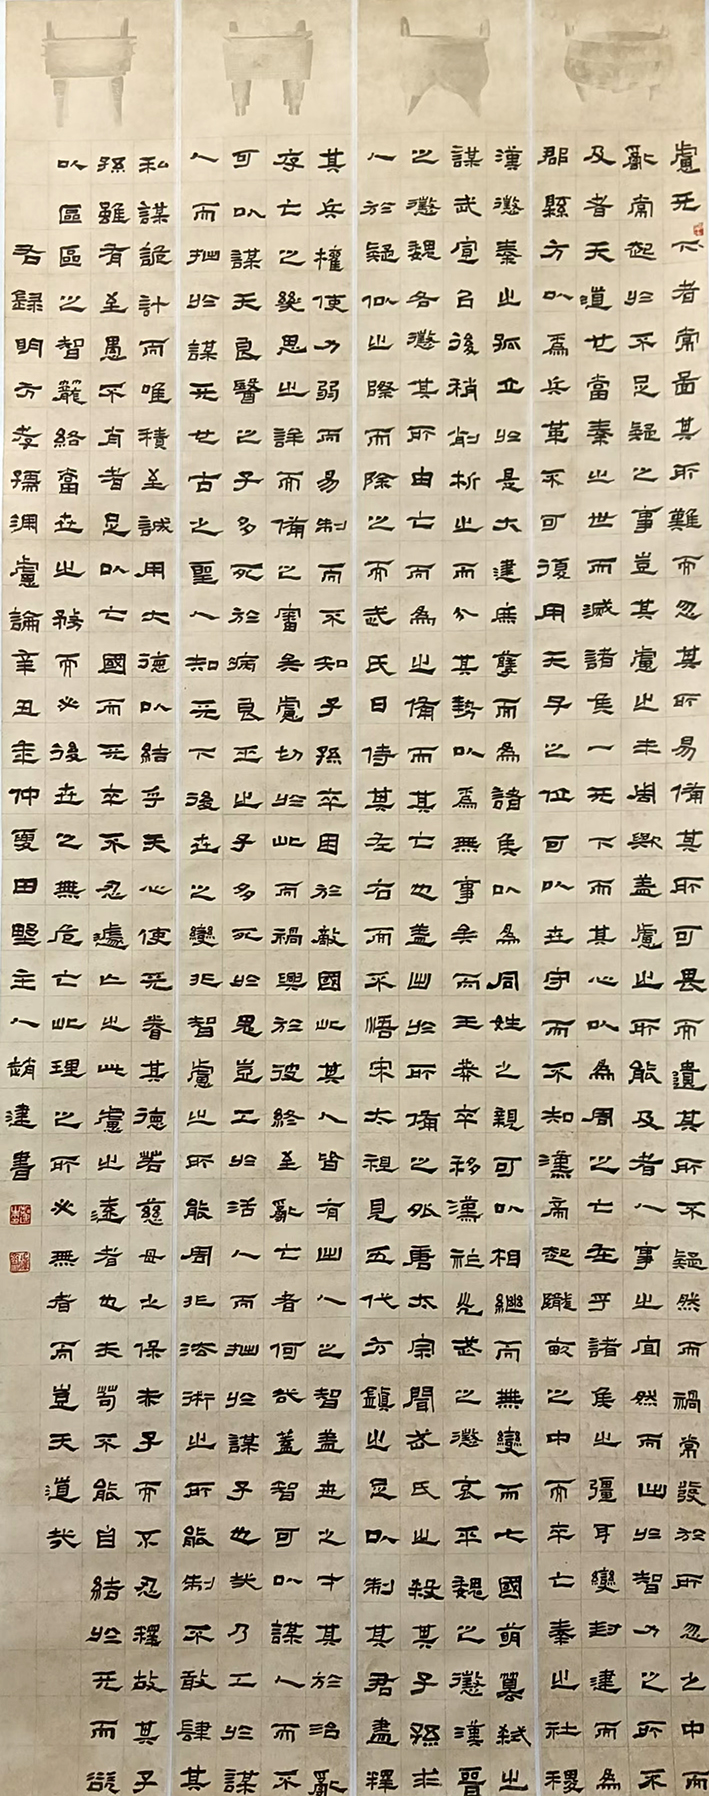 慮天下者常圖其所難而忽其所易備其所可畏而遺其所不疑然而禍常發於所忽之中而
亂常起於不足疑之事豈其慮之未周歟蓋慮之所能及者人事之宜然而出於智力之所不
及者天道也當秦之世而滅諸侯一天下而其心以為周之亡在乎諸侯之彊耳變封建而為
郡縣方以為兵革不可復用天子之位可以世守而不知漢帝起隴畝之中而卒亡秦之社稷
漢懲秦之孤立於是大建庶孽而為諸侯以為同姓之親可以相繼而無變而七國萌篡弒之
謀武宣以後稍削析之而分其勢以為無事矣而王莽卒移漢祚光武之懲哀平魏之懲漢晉
之懲魏各懲其所由亡而為之備而其亡也蓋出於所備之外唐太宗聞武氏之殺其子孫求
人於疑似之際而除之而武氏日侍其左右而不悟宋太祖見五代方鎮之足以制其君盡釋
其兵權使力弱而易制而不知子孫卒困於敵國此其人皆有出人之智蓋世之才其於治亂
存亡之幾思之詳而備之審矣慮切於此而禍興於彼終至亂亡者何哉蓋智可以謀人而不
可以謀天良醫之子多死於病良巫之子多死於鬼豈工於活人而拙於謀子也哉乃工於謀
人而拙於謀天也古之聖人知天下後世之變非智慮之所能周非法術之所能制不敢肆其
私謀詭計而唯積至誠用大德以結乎天心使天眷其德若慈母之保赤子而不忍釋故其子
孫雖有至愚不肖者足以亡國而天卒不忍遽亡之此慮之遠者也夫苟不能自結於天而欲
以區區之智籠絡當世之務而必後世之無危亡此理之所必無者而豈天道哉
右錄明方孝孺深慮論辛丑年仲夏田主人趙建書